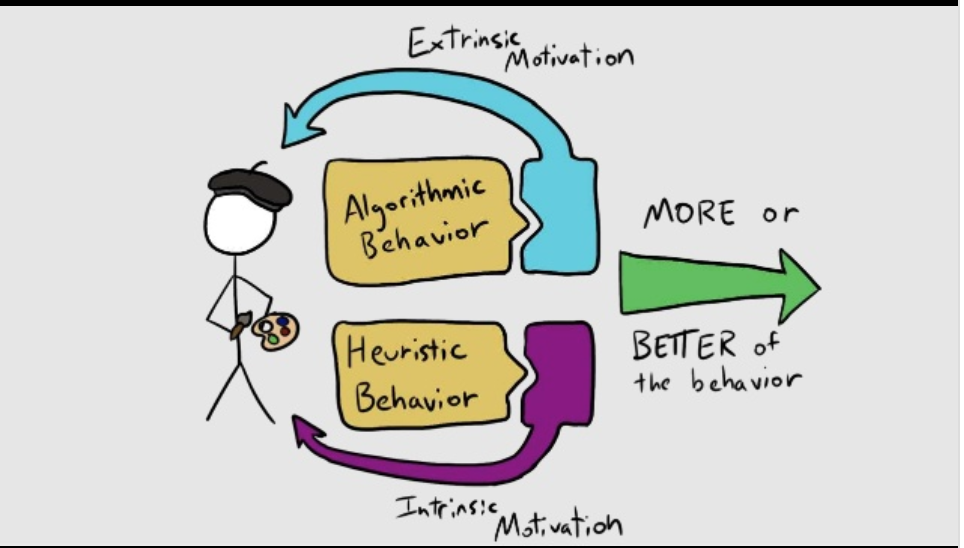 Extrinsic
Motivation
Algorithmic
Behavior
MORE or
BETTER of
the behavior
Heuristic
Behavior
Intrinsic
Motivation